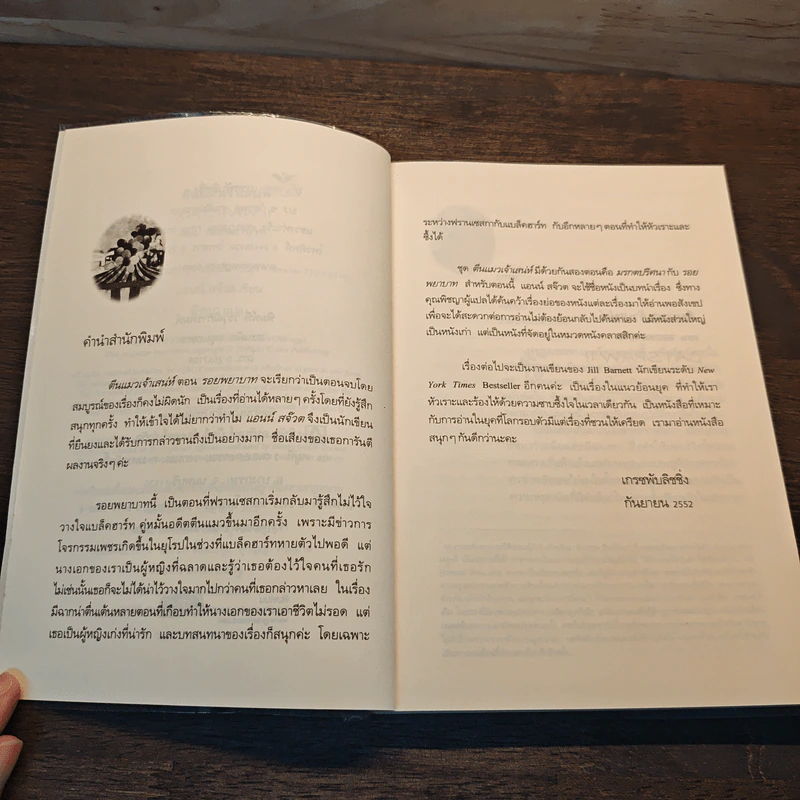 คำนำสำนักพิมพ์
ตีนแมวเจ้าเสน่ห์ ตอน รอยพยาบาท จะเรียกว่าเป็นตอนจบโดย
สมบูรณ์ของเรื่องก็คงไม่ผิดนัก เป็นเรื่องที่อ่านได้หลายๆ ครั้งโดยที่ยังรู้สึก
สนุกทุกครั้ง ทำให้เข้าใจได้ไม่ยากว่าทำไม แอนน์ สจ๊วต จึงเป็นนักเขียน
ที่ยืนยงและได้รับการกล่าวขานถึงเป็นอย่างมาก ชื่อเสียงของเธอการันตี
ผลงานจริงๆ ค่ะ
รอยพยาบาทนี้ เป็นตอนที่ฟรานเซสกาเริ่มกลับมารู้สึกไม่ไว้ใจ
วางใจแบล็คฮาร์ท คู่หมั้นอดีตตีนแมวขึ้นมาอีกครั้ง เพราะมีข่าวการ
โจรกรรมเพชรเกิดขึ้นในยุโรปในช่วงที่แบล็คฮาร์ทหายตัวไปพอดี แต่
นางเอกของเราเป็นผู้หญิงที่ฉลาดและรู้ว่าเธอต้องไว้ใจคนที่เธอรัก
ไม่เช่นนั้นเธอก็จะไม่ได้น่าไว้วางใจมากไปกว่าคนที่เธอกล่าวหาเลย ในเรื่อง
มีฉากน่าตื่นเต้นหลายตอนที่เกือบทำให้นางเอกของเราเอาชีวิตไม่รอด แต่
เธอเป็นผู้หญิงเก่งที่น่ารัก และบทสนทนาของเรื่องก็สนุกค่ะ โดยเฉพาะ
ระหว่างฟรานเซสกากับแบล็คฮาร์ท กับอีกหลายๆ ตอนที่ทำให้หัวเราะและ
ซึ้งได้
ชุด ตีนแมวเจ้าเสน่ห์ มีด้วยกันสองตอนคือ มรกตปริศนา กับ รอย
พยาบาท สำหรับตอนนี้ แอนน์ สจ๊วต จะใช้ชื่อหนังเป็นบทนำเรื่อง ซึ่งทาง
คุณพิชญาผู้แปลได้ค้นคว้าเรื่องย่อของหนังแต่ละเรื่องมาให้อ่านพอสังเขป
เพื่อจะได้สะดวกต่อการอ่านไม่ต้องย้อนกลับไปค้นหาเอง แม้หนังส่วนใหญ่
เป็นหนังเก่า แต่เป็นหนังที่จัดอยู่ในหมวดหนังคลาสสิกค่ะ
เรื่องต่อไปจะเป็นงานเขียนของ Jill Barnett นักเขียนระดับ New
York Times Bestseller อีกคนค่ะ เป็นเรื่องในแนวย้อนยุค ที่ทำให้เรา
หัวเราะและร้องไห้ด้วยความซาบซึ้งใจในเวลาเดียวกัน เป็นหนังสือที่เหมาะ
กับการอ่านในยุคที่โลกรอบตัวมีแต่เรื่องที่ชวนให้เครียด เรามาอ่านหนังสือ
สนุกๆ กันดีกว่านะคะ
เกรซพับลิชชิ่ง
กันยายน 2552